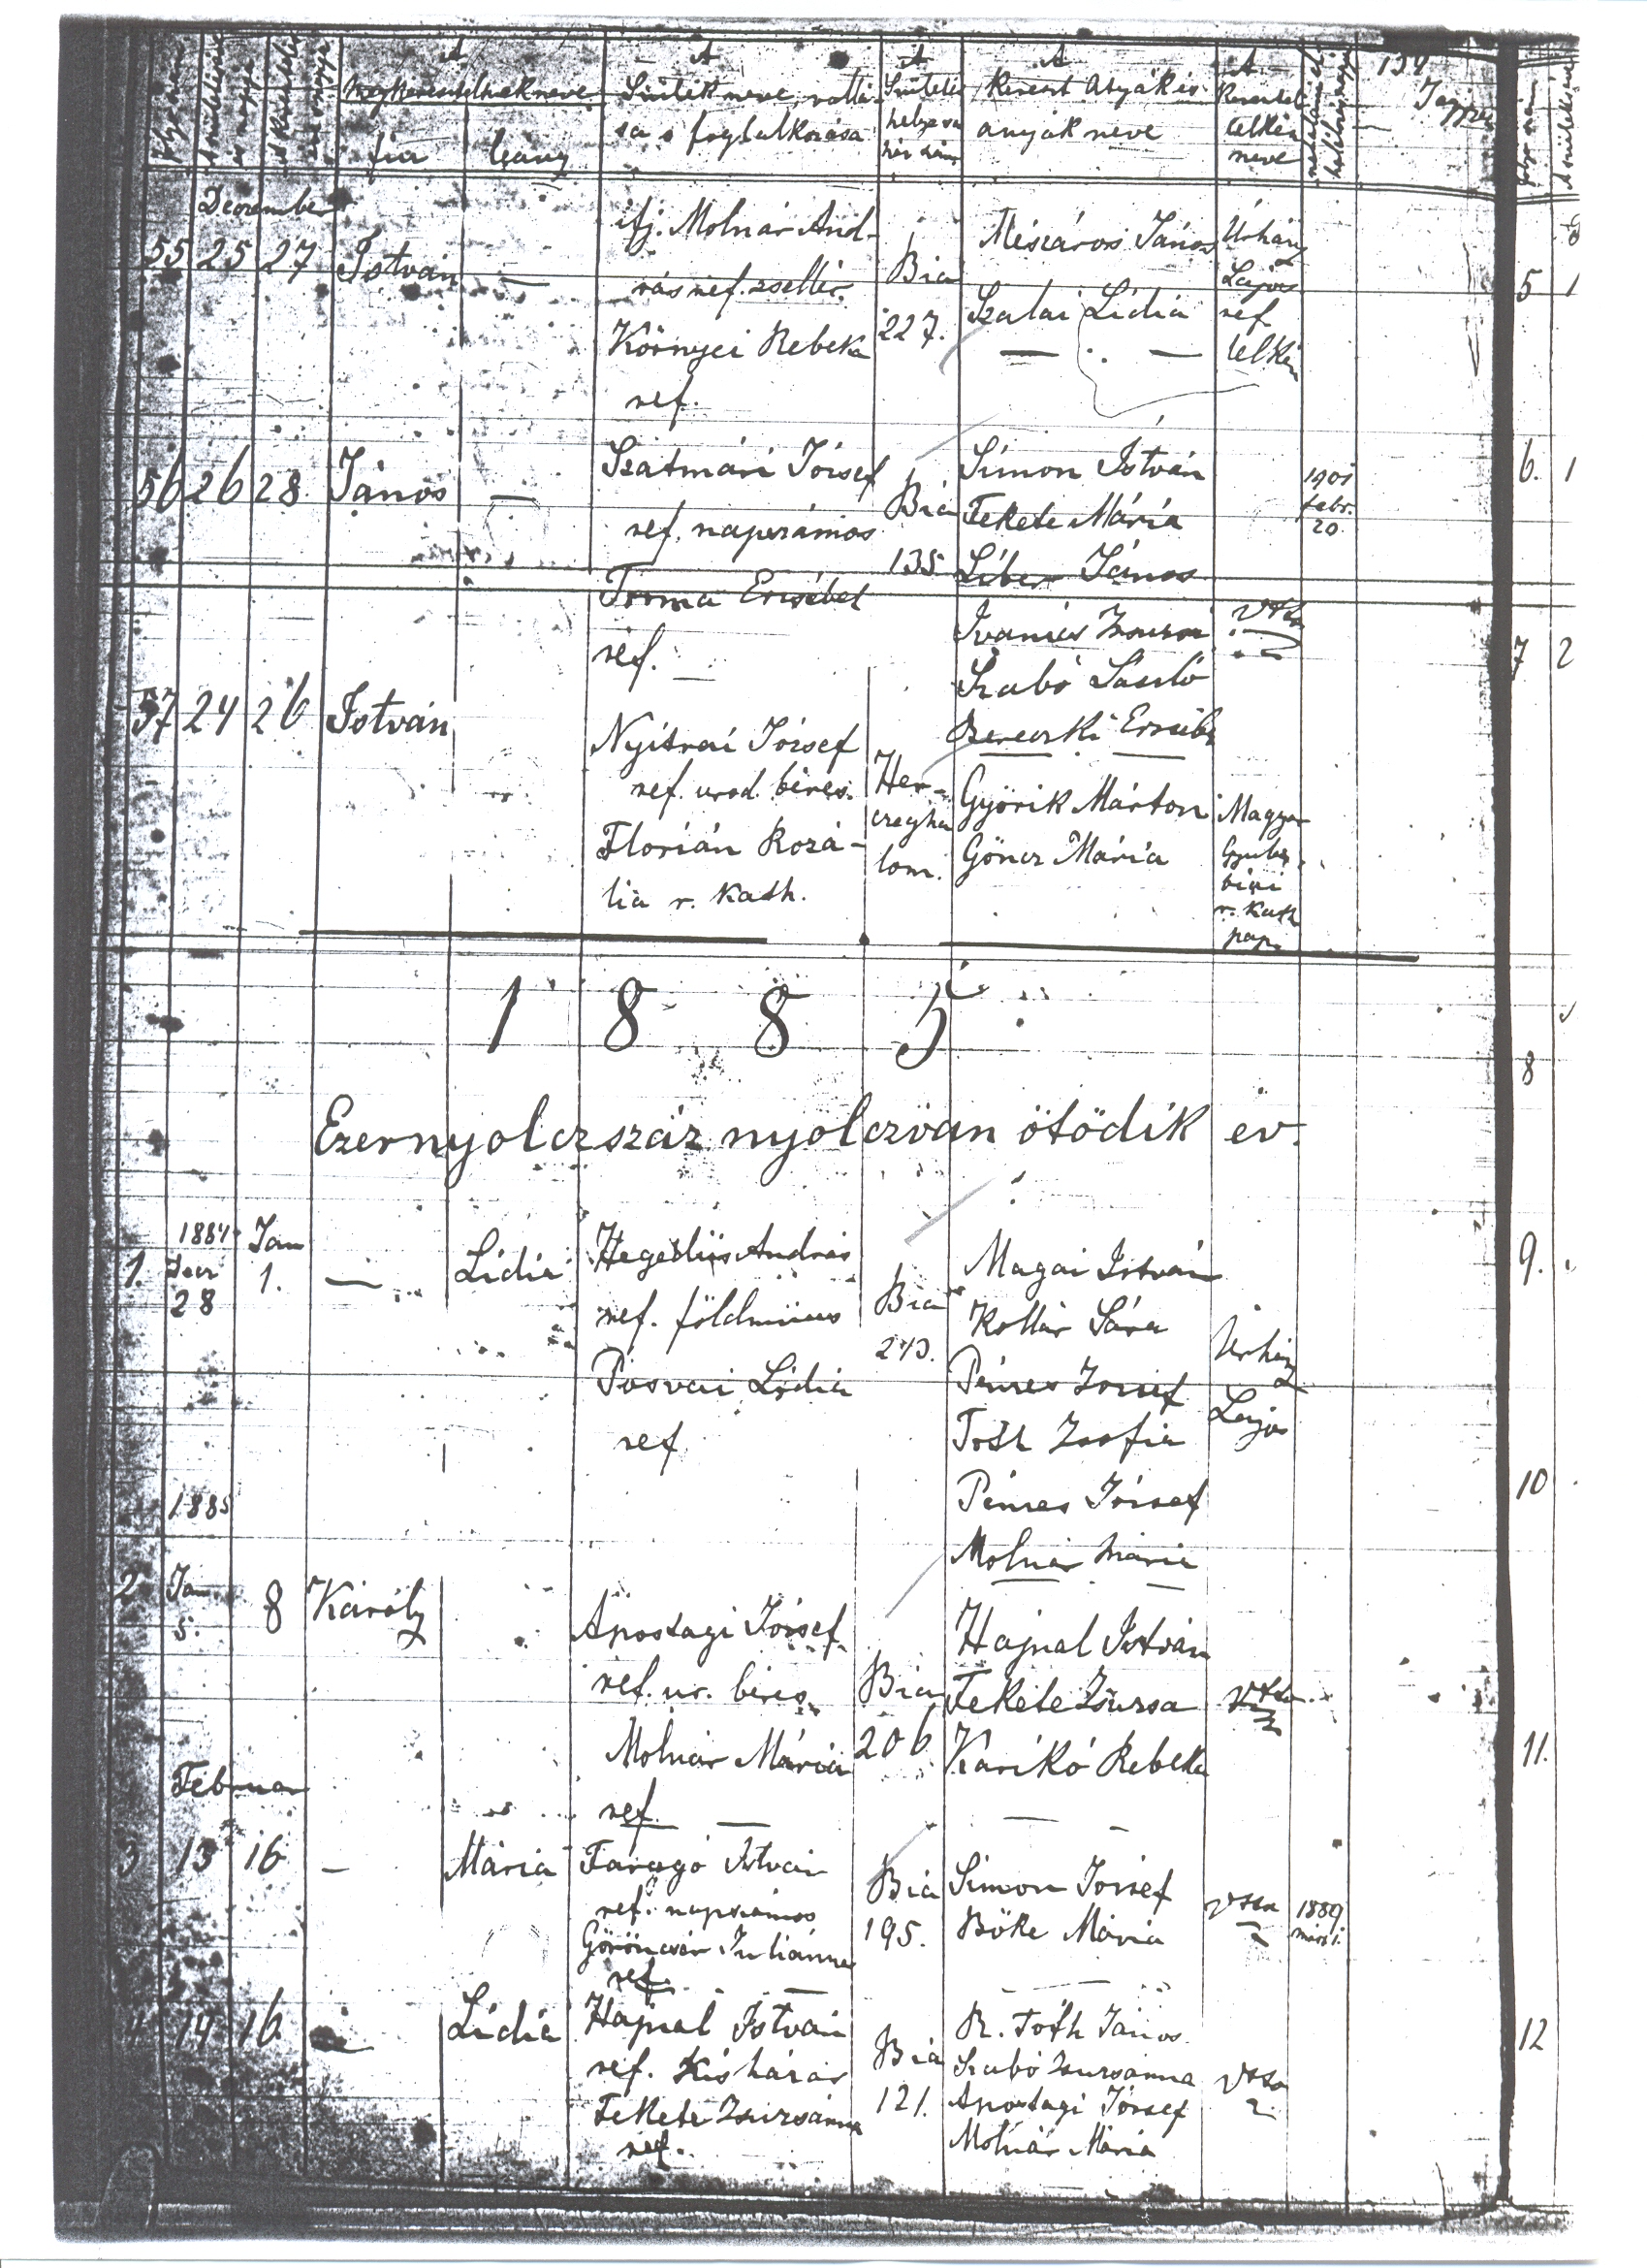 134
A megkereszteltnek neve
fiu
leány
A
Szülék neve, vallá-
sa s foglalkozása
A
Születés
helye s a
ház szám
A
kereszt atyák és
anyák neve
A
Keresztelő
lelkész
neve
December
55 25 27 István —
ifj. Molnár And-
rás ref. zsellér
Környei Rebeka
ref.
Bia
227.
Mészáros János
Szalai Lidia
Úrházy
Lajos
ref
lelkész
56 26 28 János —
Szatmári József
ref. napszámos
Torma Erzsébet
ref.
Bia
135
Simon István
Fekete Mária
Liber János
Ivanics Zsuzsa
Szabó László
Bereczki Erzsébet
1901
febr.
20.
57 24 26 István
Nyitrai József
ref. urad. béres.
Florián Rozá-
lia r. kath.
Her-
czegha
lom.
Györik Márton
Göncz Mária
Magyar
r. kath
pap.
1 8 8 5
Ezernyolczszáz nyolczvan ötödik év.
1. 1884 Decz 28
Jan 1.
— Lidia
Hegedüs András
ref. földmüves
Pósvai Lidia
ref
Bia
243.
Magai István
Kollár Sára
Pénzes József
Tóth Zsofia
Pénzes József
Molnár Mária
Úrházy
Lajos
1885
2 Jan. 5. 8 Károly
Apostagi József
ref. ur. béres.
Molnár Mária
ref.
Bia
206
Hajnal István
Fekete Zsuzsa
Karikó Rebeka
Februar
3 13 16 — Mária
Faragó István
ref. napszámos
Göröncsér Juliánna
ref.
Bia
195.
Simon József
Böke Mária
1889.
4 14 16 — Lidia
Hajnal István
ref. Kisházas
Fekete Zsuzsánna
ref.
Bia
121.
R. Tóth János
Szabó Zsuzsánna
Apostagi József
Molnár Mária
5
6.
7 2
8
9.
10
11.
12